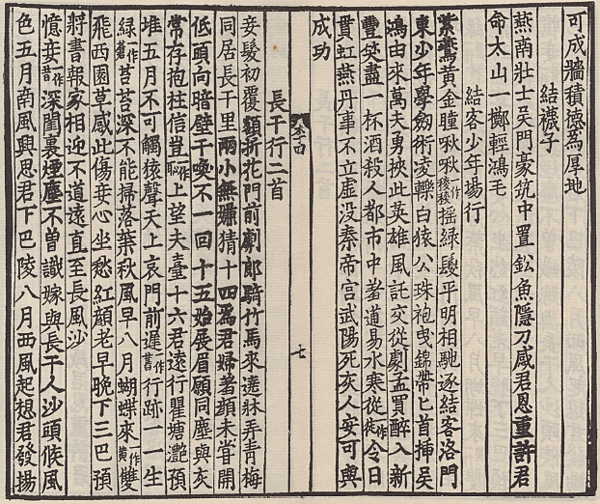 可成牆積德為厚地
結襪子
燕南壯士吳門豪筑中置鈆魚隱刀感君恩重許君
命太山一擲輕鴻毛
結客少年場行
紫鷰黃金瞳啾啾一作稜稜搖綠騣平明相馳逐結客洛門
東少年學劒術凌轢白猿公珠袍曳錦帶匕首揷吳
鴻由來萬夫勇挾此英雄風託交從劇孟買醉入新
豐笑盡一杯酒殺人都市中羞道易水寒從一作徒令日
貫虹燕丹事不立虛没秦帝宮武陽死灰人安可與
成功
七
長干行二首
妾髮初覆額折花門前劇郎騎竹馬來遶牀弄青梅
同居長干里兩小無嫌猜十四為君婦羞顏未甞開
低頭向暗壁千喚不一回十五始展眉願同塵與灰
常存抱柱信豈一作恥上望夫臺十六君遠行瞿塘灧預
堆五月不可觸猿聲天上哀門前遲一作舊行跡一一生
綠一作蒼苔苔深不能掃落葉秋風早八月蝴蝶來一作黃雙
飛西園草感此傷妾心坐愁紅顏老早晚下三巴預
將書報家相迎不道遠直至長風沙
憶妾一作昔深閨裏煙塵不曾識嫁與長干人沙頭候風
色五月南風興思君下巴陵八月西風起想君發揚